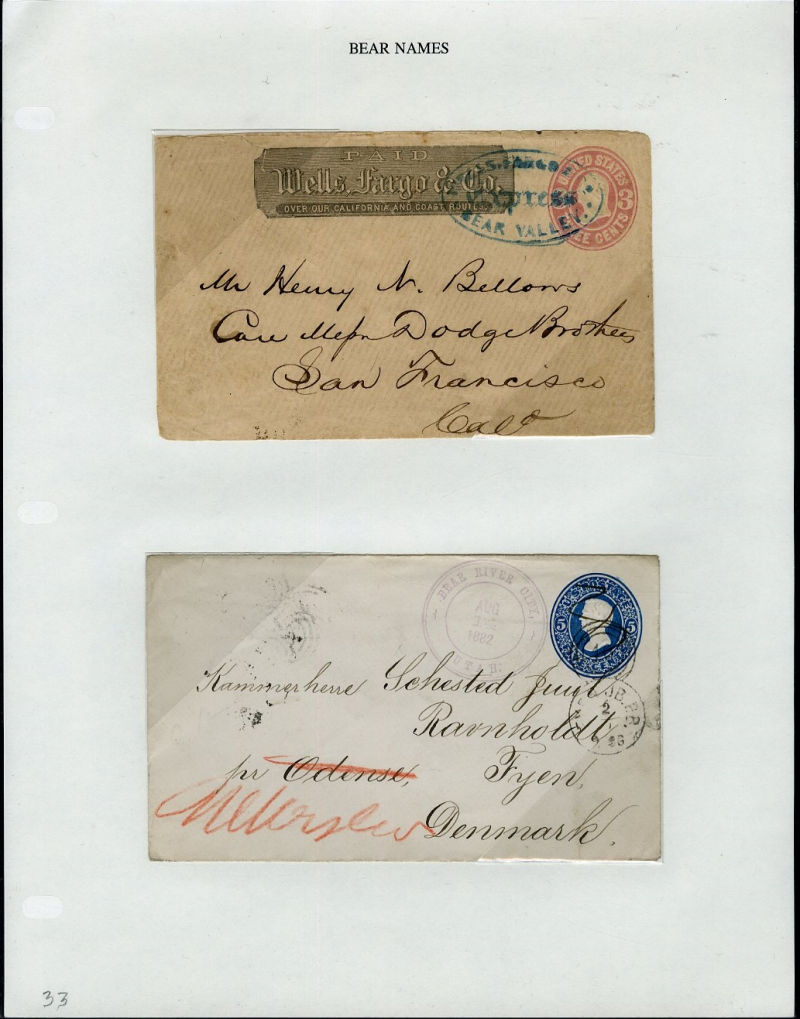 BEAR NAMES
PAID
Wells, Fargo & Co.
OVER OUR CALIFORNIA AND COAST ROUTES.
FARGO
Express
BEAR VALLEY
UNITED STATES
3
CENTS
Mr Henry N. Bellows
Care Messrs Dodge Brothers
San Francisco
Cal
BEAR RIVER CITY,
AUG
1882
UTAH.
5
5
Kammerherre Sehested Juul
Ravnholdt
pr Odense, Fyen,
Denmark.
2
33